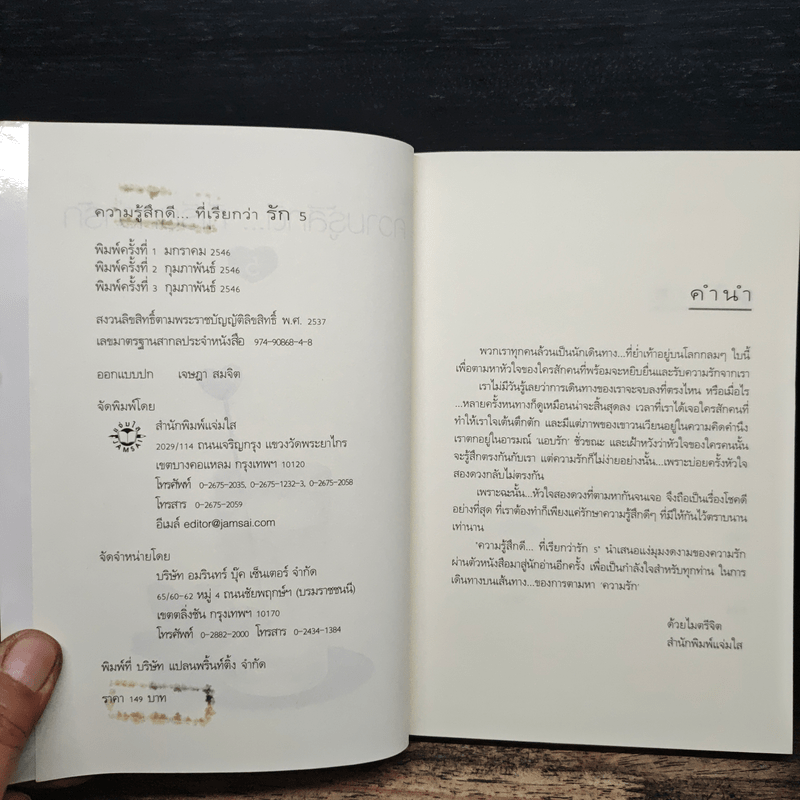 ความรู้สึกดี... ที่เรียกว่า รัก 5
พิมพ์ครั้งที่ 1 มกราคม 2546
พิมพ์ครั้งที่ 2 กุมภาพันธ์ 2546
พิมพ์ครั้งที่ 3 กุมภาพันธ์ 2546
สงวนลิขสิทธิ์ตามพระราชบัญญัติลิขสิทธิ์ พ.ศ. 2537
เลขมาตรฐานสากลประจำหนังสือ 974-90868-4-8
ออกแบบปก เจษฎา สมจิต
จัดพิมพ์โดย
สำนักพิมพ์แจ่มใส
2029/114 ถนนเจริญกรุง แขวงวัดพระยาไกร
เขตบางคอแหลม กรุงเทพฯ 10120
โทรศัพท์ 0-2675-2035, 0-2675-1232-3, 0-2675-2058
โทรสาร 0-2675-2059
อีเมล์ editor@jamsai.com
จัดจำหน่ายโดย
บริษัท อมรินทร์ บุ๊ค เซ็นเตอร์ จำกัด
65/60-62 หมู่ 4 ถนนชัยพฤกษ์ฯ (บรมราชชนนี)
เขตตลิ่งชัน กรุงเทพฯ 10170
โทรศัพท์ 0-2882-2000 โทรสาร 0-2434-1384
พิมพ์ที่ บริษัท แปลนพริ้นท์ติ้ง จำกัด
ราคา 149 บาท
คำนำ
พวกเราทุกคนล้วนเป็นนักเดินทาง...ที่ย่ำเท้าอยู่บนโลกกลมๆ ใบนี้
เพื่อตามหาหัวใจของใครสักคนที่พร้อมจะหยิบยื่นและรับความรักจากเรา
เราไม่มีวันรู้เลยว่าการเดินทางของเราจะจบลงที่ตรงไหน หรือเมื่อไร
...หลายครั้งหนทางก็ดูเหมือนน่าจะสิ้นสุดลง เวลาที่เราได้เจอใครสักคนที่
ทำให้เราใจเต้นตึกตัก และมีแต่ภาพของเขาวนเวียนอยู่ในความคิดคำนึง
เราตกอยู่ในอารมณ์ 'แอบรัก' ชั่วขณะ และเฝ้าหวังว่าหัวใจของใครคนนั้น
จะรู้สึกตรงกันกับเรา แต่ความรักก็ไม่ง่ายอย่างนั้น...เพราะบ่อยครั้งหัวใจ
สองดวงกลับไม่ตรงกัน
เพราะฉะนั้น...หัวใจสองดวงที่ตามหากันจนเจอ จึงถือเป็นเรื่องโชคดี
อย่างที่สุด ที่เราต้องทำก็เพียงแค่รักษาความรู้สึกดีๆ ที่มีให้กันไว้ตราบนาน
เท่านาน
'ความรู้สึกดี... ที่เรียกว่ารัก 5' นำเสนอแง่มุมงดงามของความรัก
ผ่านตัวหนังสือมาสู่นักอ่านอีกครั้ง เพื่อเป็นกำลังใจสำหรับทุกท่าน ในการ
เดินทางบนเส้นทาง...ของการตามหา 'ความรัก'
ด้วยไมตรีจิต
สำนักพิมพ์แจ่มใส